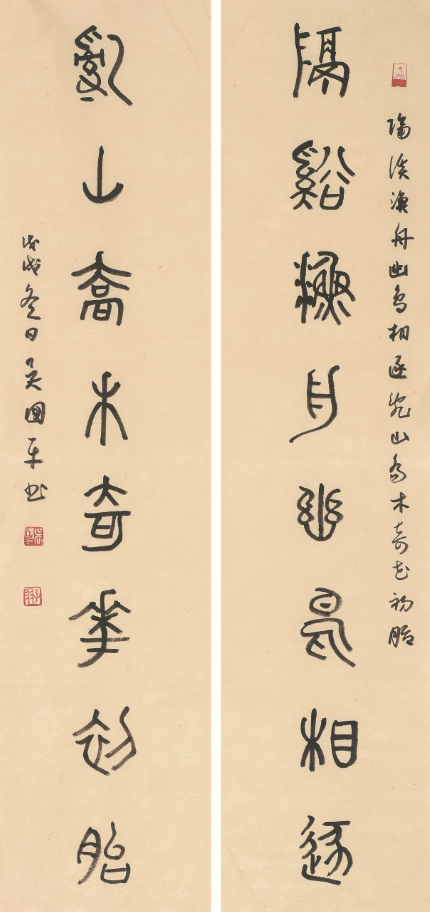 隔溪漁舟幽鳥相逐亂山喬木奇花初胎
隔谿漁舟幽鳥相逐
亂山喬木奇華初胎
戊戌冬日吳國平書